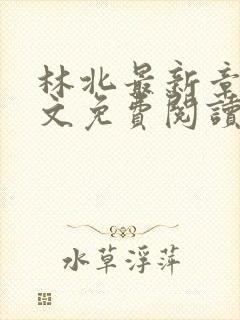 林北最新章
文免費閱讀
水草浮萍